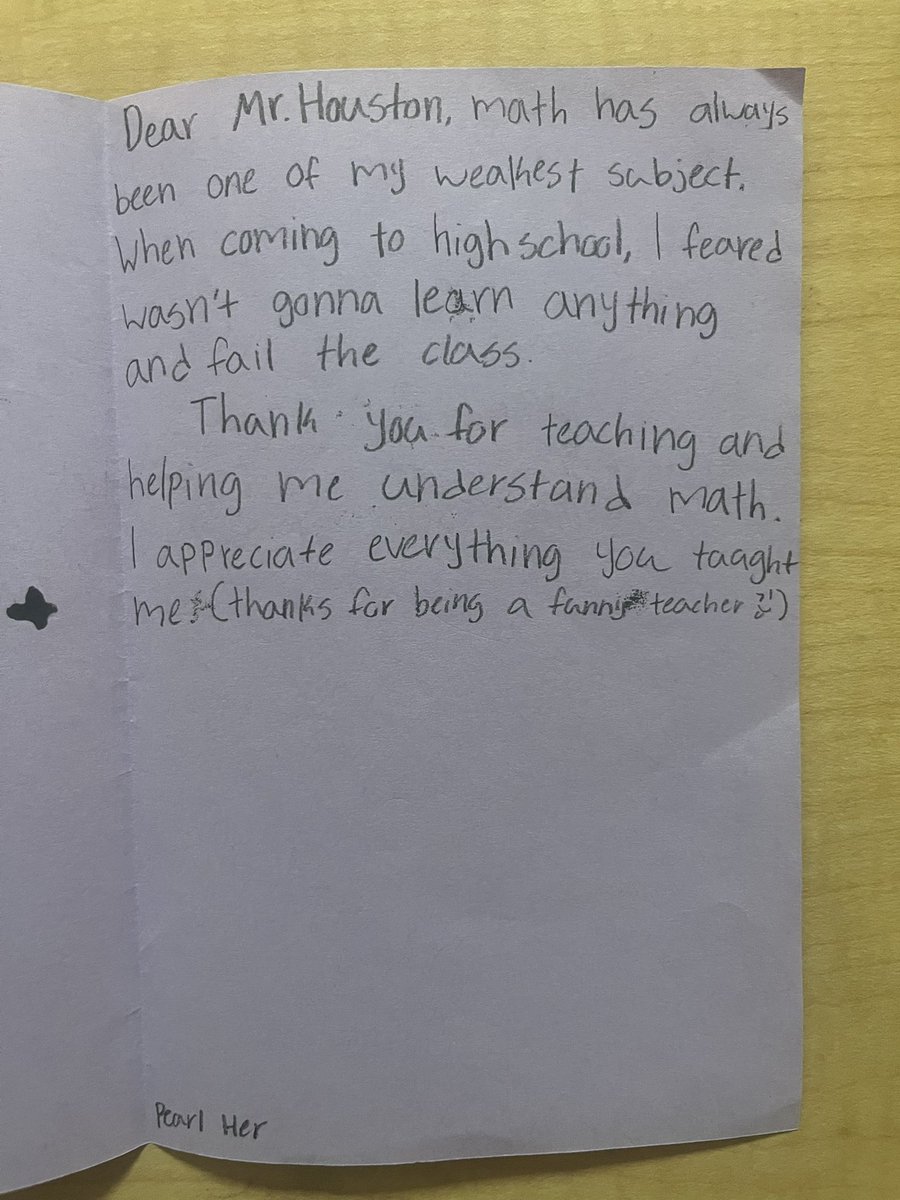 Dear Mr. Houston, math has always
been one of my weakest subject.
When coming to highschool, I feared
wasn't gonna learn anything
and fail the class.
Thank you for teaching and
helping me understand math.
I appreciate everything you taught
me (thanks for being a funny teacher :))
Pearl Her